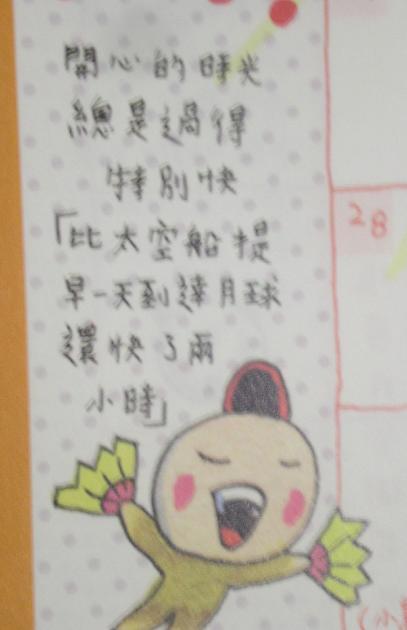 開心的時光
總是過得
特別快
「比太空船提
早一天到達月球
還快了兩
小時」
28